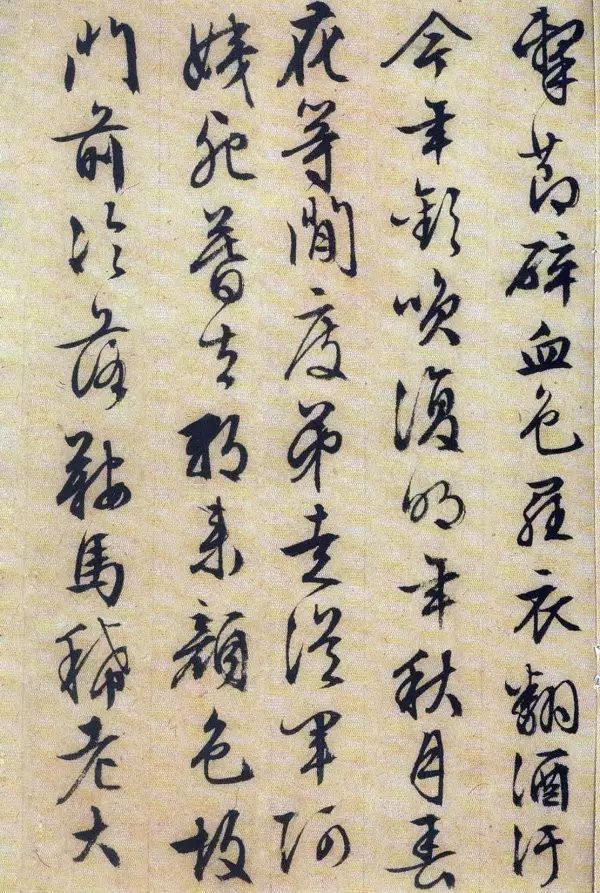 擊節碎血色羅衣翻酒汙
今年歡咲復明年秋月春
花等閒度弟走從軍阿
姨死暮去朝來顏色故
門前冷落鞍馬稀老大